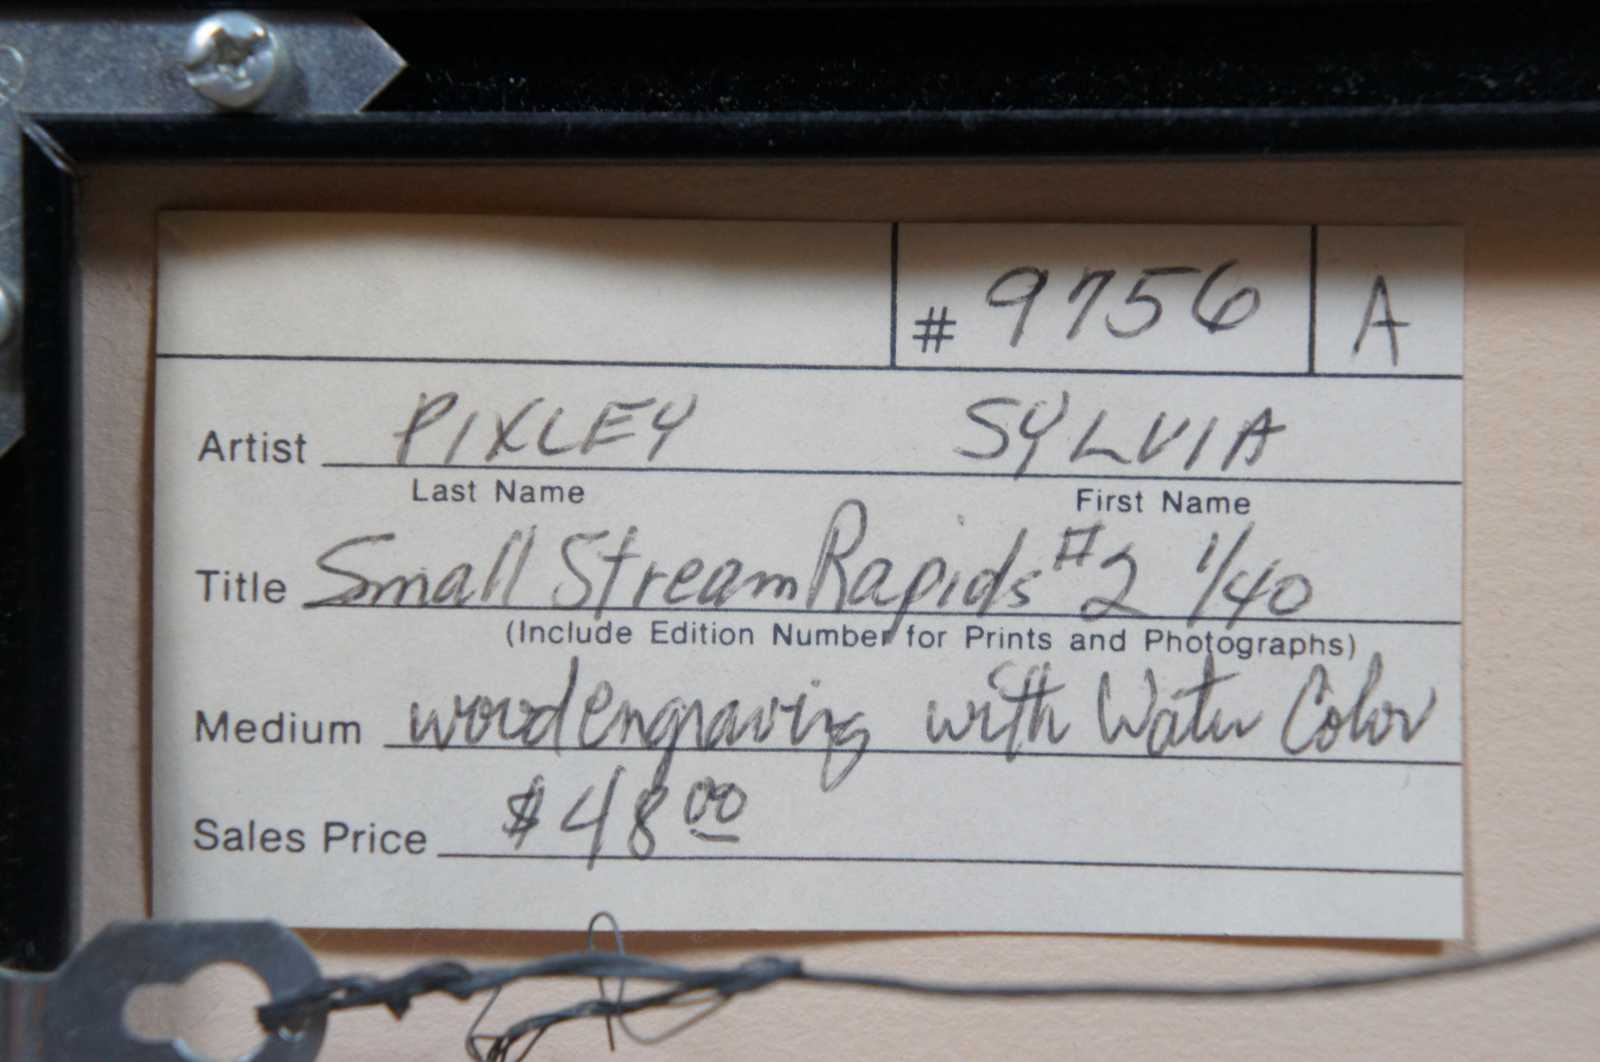 # 9756 A
Artist PIXLEY SYLVIA
Last Name First Name
Title Small Stream Rapids #2 1/40
(Include Edition Number for Prints and Photographs)
Medium wood engraving with Water Color
Sales Price $48.00